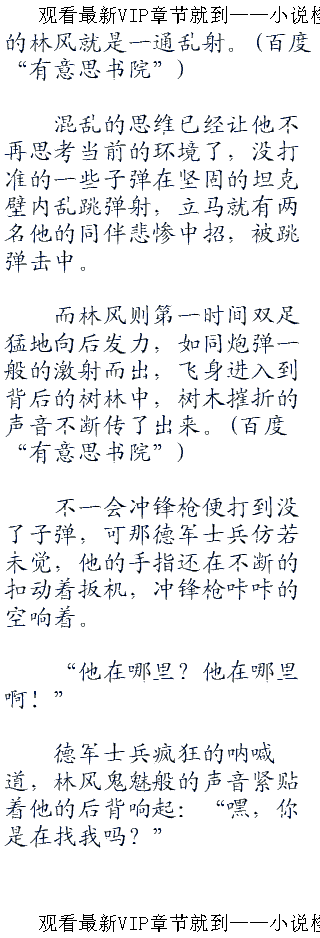 观看最新VIP章节就到——小说检
的林风就是一通乱射。(百度
“有意思书院”)
混乱的思维已经让他不
再思考当前的环境了，没打
准的一些子弹在坚固的坦克
壁内乱跳弹射，立马就有两
名他的同伴悲惨中招，被跳
弹击中。
而林风则第一时间双足
猛地向后发力，如同炮弹一
般的激射而出，飞身进入到
背后的树林中，树木摧折的
声音不断传了出来。(百度
“有意思书院”)
不一会冲锋枪便打到没
了子弹，可那德军士兵仿若
未觉，他的手指还在不断的
扣动着扳机，冲锋枪咔咔的
空响着。
“他在哪里？他在哪里
啊！”
德军士兵疯狂的呐喊
道，林风鬼魅般的声音紧贴
着他的后背响起：“嘿，你
是在找我吗？”
观看最新VIP章节就到——小说检